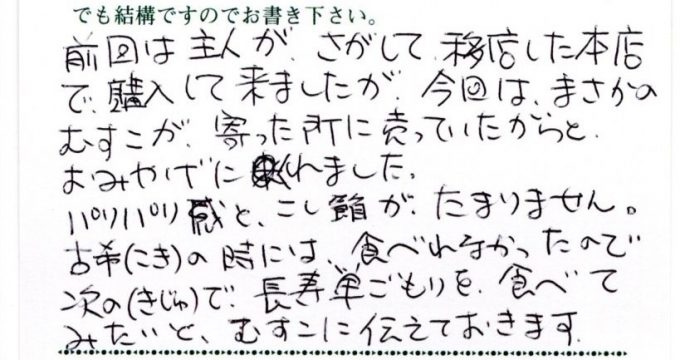 でも結構ですのでお書き下さい。
前回は主人が、さがして、移店した本店
で、購入して来ましたが、今回は、まさかの
むすこが、寄った所に売っていたからと、
おみやげにくれました。
パリパリ感と、こし餡が、たまりません。
古希(こき)の時には、食べれなかったので
次の(きじゅ)で、長寿巣ごもりを、食べて
みたいと、むすこに伝えておきます。